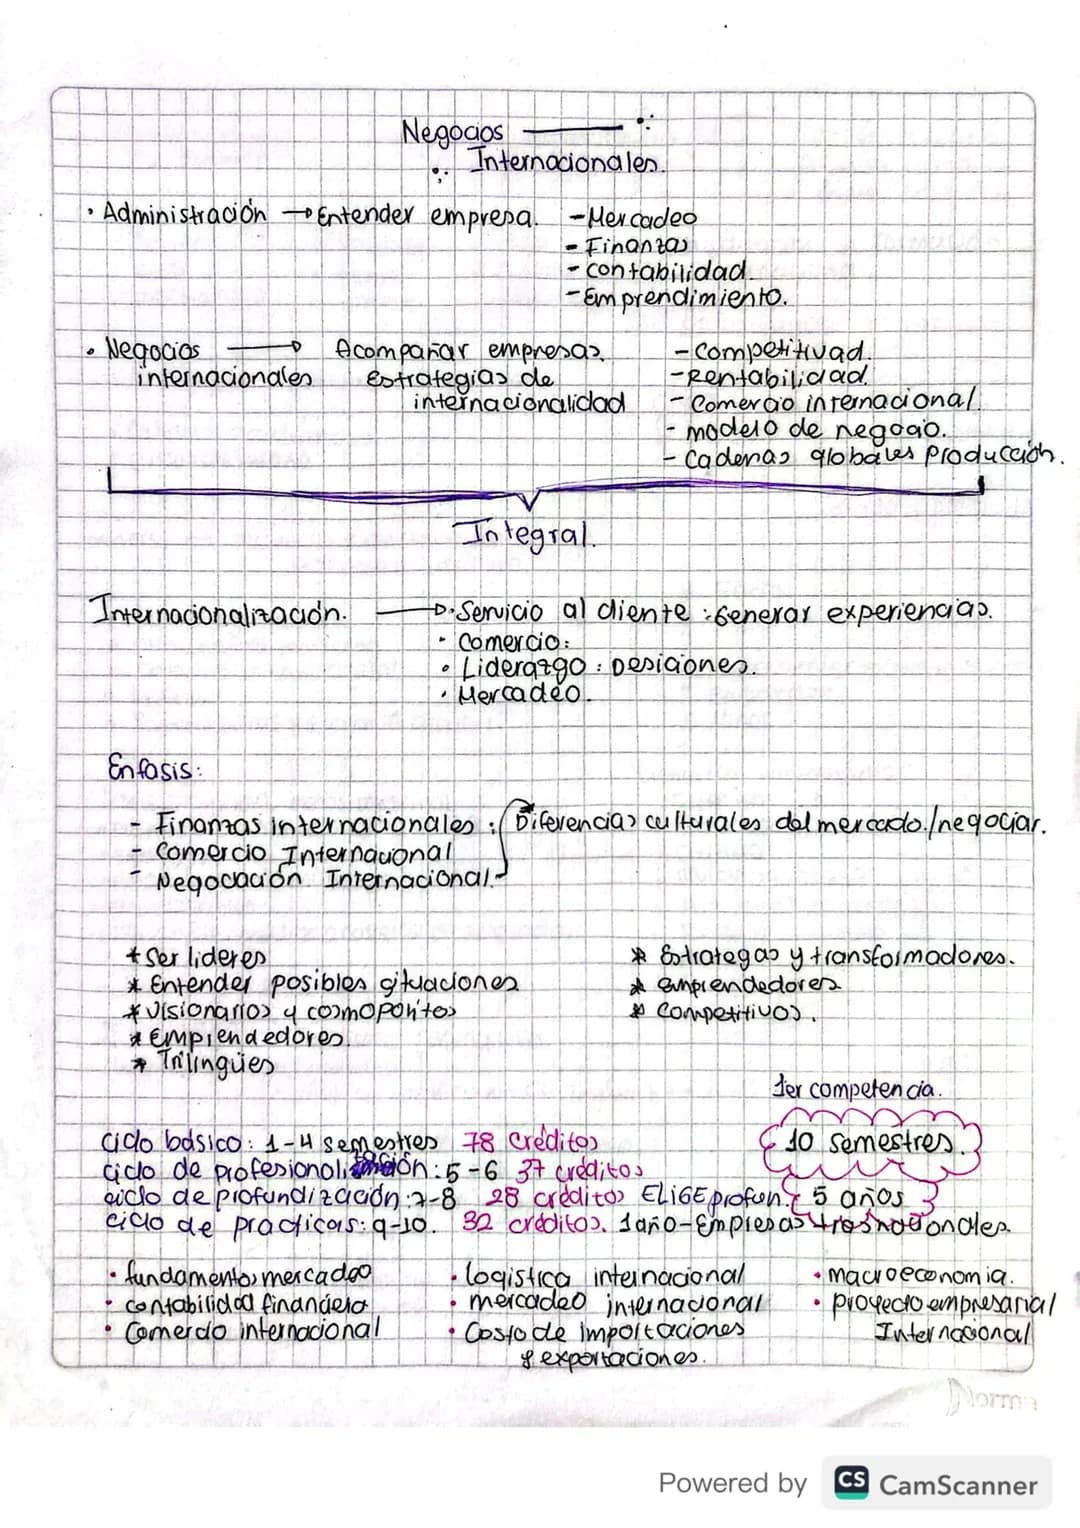 Negocios
Internacionales.
• Administración → Entender empresa. - Mercadeo
- Finanzas
- contabilidad.
- Emprendimiento.
• Negocios → Acompañar empresas. - Competitivad.
internacionales Estrategias de - Rentabilidad.
internacionalidad - Comercio internacional.
- modelo de negocio.
- Cadenas globales Producción.
Integral.
Internacionalización. → • Servicio al cliente : Generar experiencias.
• Comercio:
• Liderazgo : Desiciones.
• Mercadeo.
Enfasis:
- Finanzas internacionales : Diferencias culturales del mercado./negociar.
- Comercio Internacional
- Negociación Internacional.
* Ser lideres * Estrategas y transformadores.
* Entender posibles situaciones * emprendedores
* Visionarios y cosmopolitos * Competitivos.
* Emprendedores.
* Trilingües
1er competencia.
Ciclo básico: 1-4 semestres 78 Créditos 10 semestres.
Ciclo de profesionalización: 5-6 37 créditos
ciclo de profundización: 7-8 28 créditos ELIGE profun. 5 años
Ciclo de practicas: 9-10. 32 créditos. 1 año - Empresas trasnacionales.
• fundamentos mercadeo • logistica internacional • macroeconomia.
• contabilidad financiera • mercadeo internacional • proyecto empresarial
• Comercio internacional • Costo de importaciones Internacional
y exportaciones.
Norma
Powered by CS CamScanner